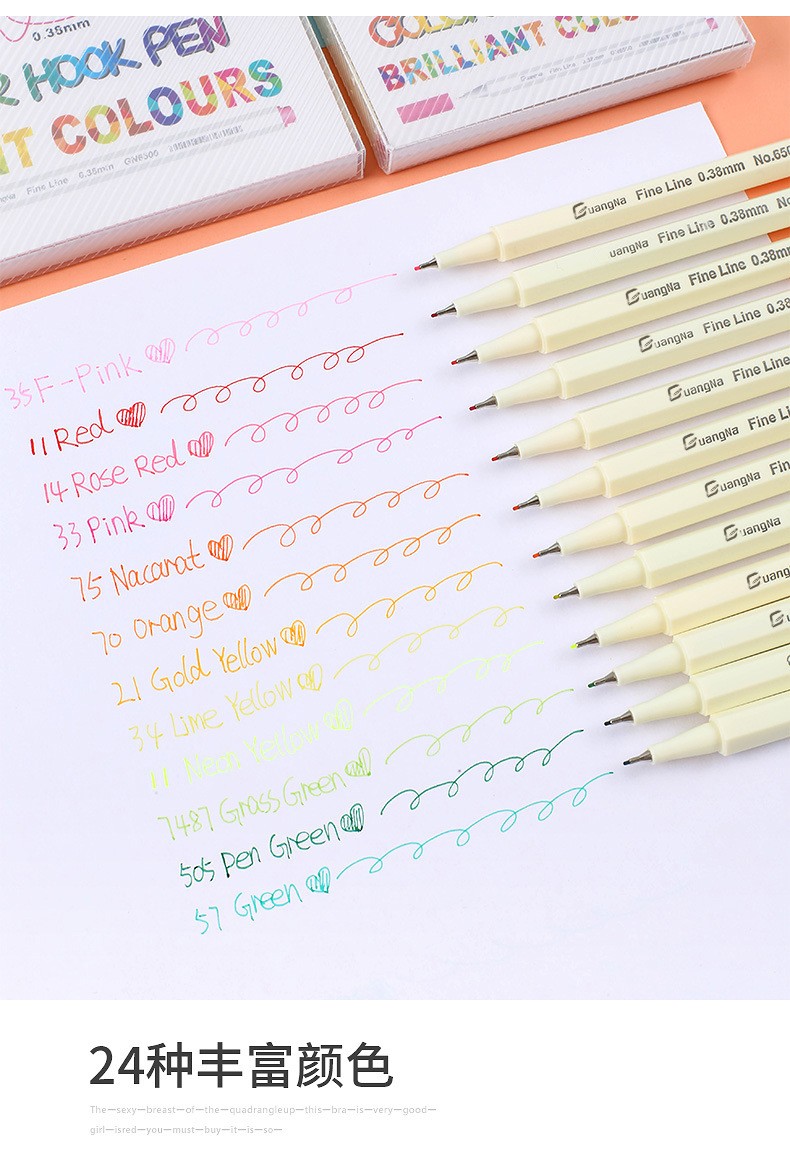 0.38mm
HOOK PEN
COLOURS
Fine Line 0.38mm GN6500
BRILLIANT COLOURS
GuangNa Fine Line 0.38mm No.650
uangNa Fine Line 0.38mm No
GuangNa Fine Line 0.38mm
GuangNa Fine Line 0.38
GuangNa Fine Line
GuangNa Fine Li
GuangNa Fin
GuangNa
Guang
Gu
35F-Pink
11 Red
14 Rose Red
33 Pink
75 Nacarat
70 Orange
21 Gold Yellow
34 Lime Yellow
11 Neon Yellow
7487 Grass Green
505 Pen Green
57 Green
24种丰富颜色
The—sexy—breast—of—the—quadrangleup—this—bra—is—very—good—
girl—isred—you—must—buy—it—is—so—